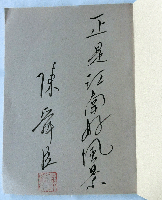 正是江南好風景
陳舜臣